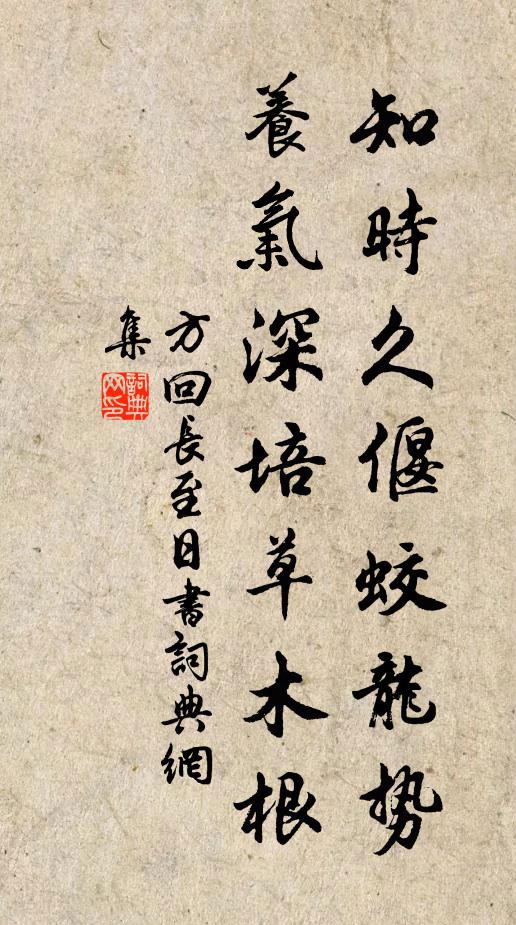 知時久偃蛟龍勢
養氣深培草木根
方回長至日書詞典網
集
詞典网印